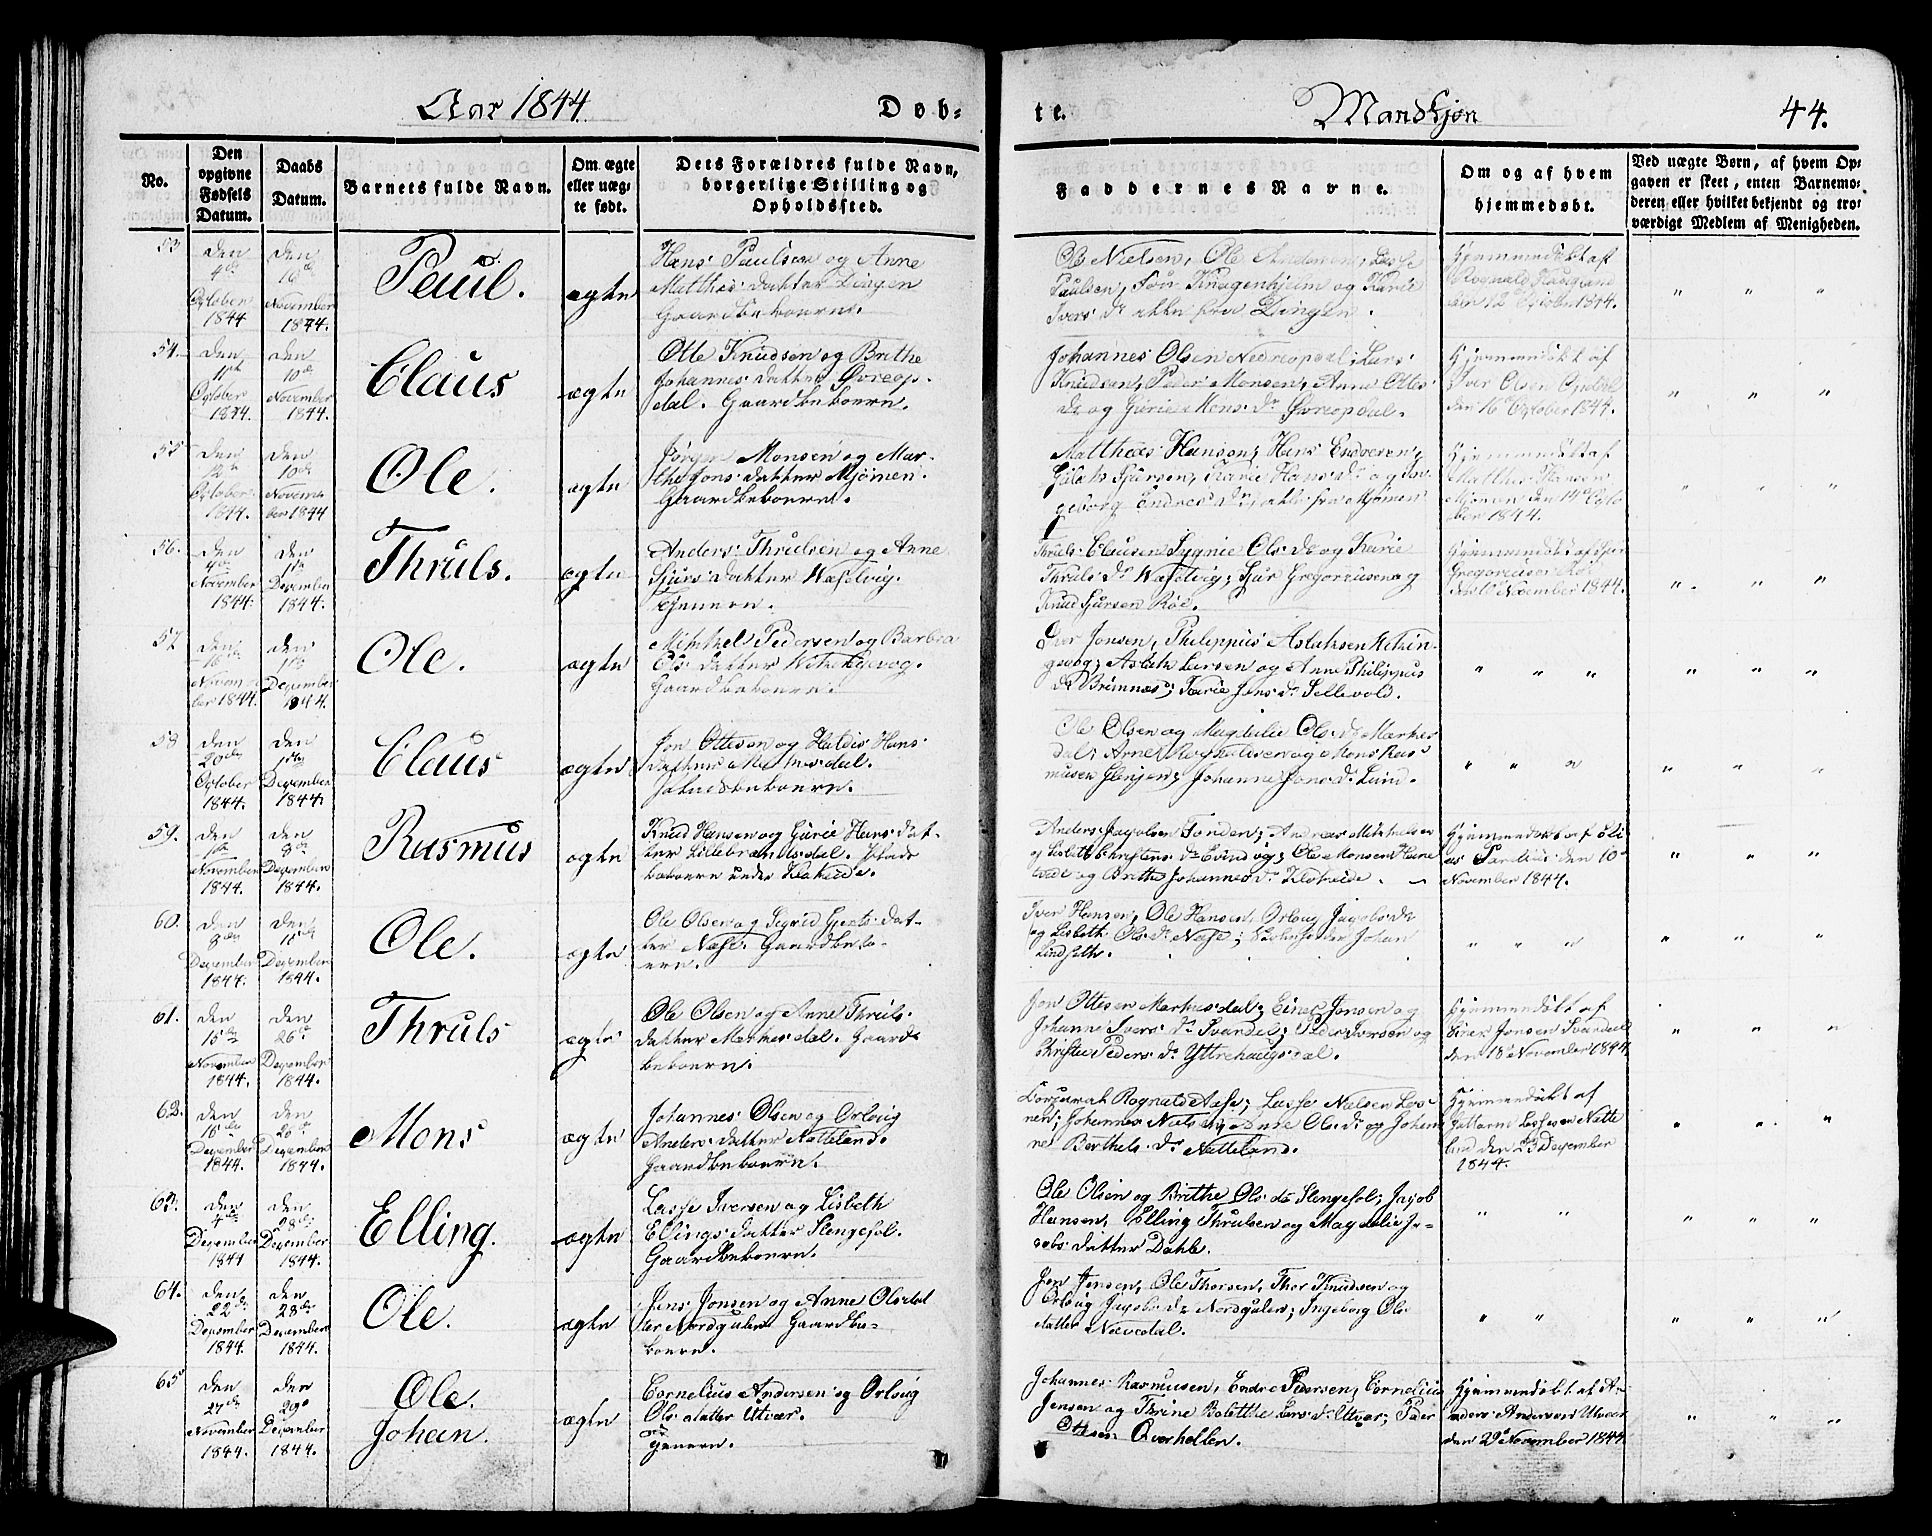 Aar 1844.
Døb-
te.
Mandkjøn
44.
No.
Den
opgivne
Fødsels
Datum.
Daabs
Datum.
Barnets fulde Navn.
Om ægte
eller uæg-
te født.
Dets Forældres fulde Navn,
borgerlige Stilling og
Opholdssted.
Faddernes Navne.
Om og af hvem
hjemmedøbt.
Ved uægte Børn, af hvem Op-
gaven er skeet, enten Barnemo-
deren eller hvilket bekjendt og tro-
værdigt Medlem af Menigheden.
53
den
October
1844
den
November
1844.
Paul.
ægte
Hans Paulsen og Anne
Matthes datter Dingen
Gaardbeboere.
Ole Nielsen, Ole Andersen, Lasse
Paulsen, og Karie
Ivers dr alle fra Dingen.
Hjemmedøbt af
den 12 October 1844.
54.
den
October
1844.
den
10de
November
1844.
Claus
ægte
Otte Knudsen og Brithe
Johannes datter Øvreop-
dal. Gaardbeboere.
Johannes Olsen Nedreopdal; Lars
Knudsen, Peder Monsen, Anne Ottes
dr og Gurie Mons dr Øvreopdal.
Hjemmedøbt af
Iver Olsen Opdal
den 16 October 1844.
55
den
12te
October
1844.
den
10de
Novem-
ber 1844
Ole.
ægte
Jørgen Monsen og Mar-
the Jons datter Mjømen.
Gaardbeboere.
Matthæs Hansen, Hans Endresen,
Sjursen, Karie Hans dr og In-
geborg Endres dr, alle fra Mjømen
Hjemmedøbt af
Matthes Hansen
Mjømen den 14 Octo
ber 1844.
56.
den
4de
November
1844.
den
1te
December
1844.
Thruls.
ægte
Anders Thrulsen og Anne
Sjurs datter Waselvig.
Thruls Clausen Sygnie Ols dr og Karie
Thruls dr Waselvig; Sjur Gregoriusen og
Knud Sjursen Røe.
Hjemmedøbt af Sjur
Gregoriusen Røe
November 1844.
57
den
16de
Novem-
ber 1844.
den
1te
December
1844.
Ole.
ægte
Mikkel Pedersen og Barbra
Ols datter
Gaardbeboere.
Peer Jonsen, Philippus Aslaksen
Aslak Larsen og Anne Philippus
dr Brimnes; Karie Jons dr Sellevold.
58
den
20de
October
1844.
den
1te
December
1844.
Claus
ægte
Jon Ottesen og Haldis Hans
datter Mekesdal.
Ole Olsen og Magdelie Ols dr
dal; Arne og Mons Ras-
musen Johanne Jons dr Lund.
59.
den
1te
November
1844.
den
8de
December
1844.
Rasmus
ægte
Knud Hansen og Gurie Hans dat-
ter Lillebrændsdal.
beboere under
Anders Jacobsen Tonden; Andreas Mikkelsen
og Lisbeth Christens dr Evindvig; Ole Monsen
og Brithe Johannes dr
Hjemmedøbt af Eli
as den 10
November 1844.
60.
den
8de
December
1844.
den
December
1844.
Ole.
ægte
Ole Olsen og Sigrid Gjerts dat-
ter Næse. Gaardbebo-
ere.
Iver Hansen, Ole Hansen, Orloug Jacobs dr
og Lisbeth Ols dr Næse; Johan
Lindseth.
61.
den
15de
November
1844.
den
26de
December
1844.
Thruls
ægte
Ole Olsen og Anne Thruls
datter Mekesdal. Gaard-
beboere.
Jon Ottesen Mekesdal; Einer Jonsen og
Johanne Ivers dr Svardal; Peder Iversen og
Christie Peders dr Yttrehaugsdal.
Hjemmedøbt af
Einer Jonsen Svardal
den 18 November 1844.
62.
den
16de
December
1844.
den
26de
December
1844.
Mons
ægte
Johannes Olsen og Orloug
Anders datter Natteland.
Gaardbeboere.
Lasse Nielsen
Johannes Nielsen, Anne Ols dr og Johan
ne Berthels dr Natteland.
Hjemmedøbt af
Lassesen Natte
land den 23 December
1844.
63.
den
4de
December
1844
den
28de
December
1844.
Elling.
ægte
Lasse Iversen og Lisbeth
Ellings datter Slengesol.
Gaardbeboere.
Ole Olsen og Brithe Ols dr Slengesol; Jacob
Hansen, Elling Thrulsen og Magdelie Ja-
cobs datter Dahle.
64.
den
22de
December
1844.
den
28de
December
1844.
Ole.
ægte
Jens Jonsen og Anne Ols dat
ter Nordgulen Gaardbe-
boere.
Jon Jensen, Ole Thorsen, Thor Knudsen og
Orloug Jacobs dr Nordgulen; Ingeborg Ols
datter Nævedal.
65
den
27de
November
1844.
den
29de
December
1844.
Ole
Johan.
ægte
Cornelius Andersen og Orloug
Ols datter Utvær.
Johannes Rasmusen, Endre Pedersen, Cornelius
Jensen og Thrine Bolethe Lars dr Utvær; Peder
Ottesen Qverhellen.
Hjemmedøbt af A-
nders Andersen Utvær
den 29 November 1844